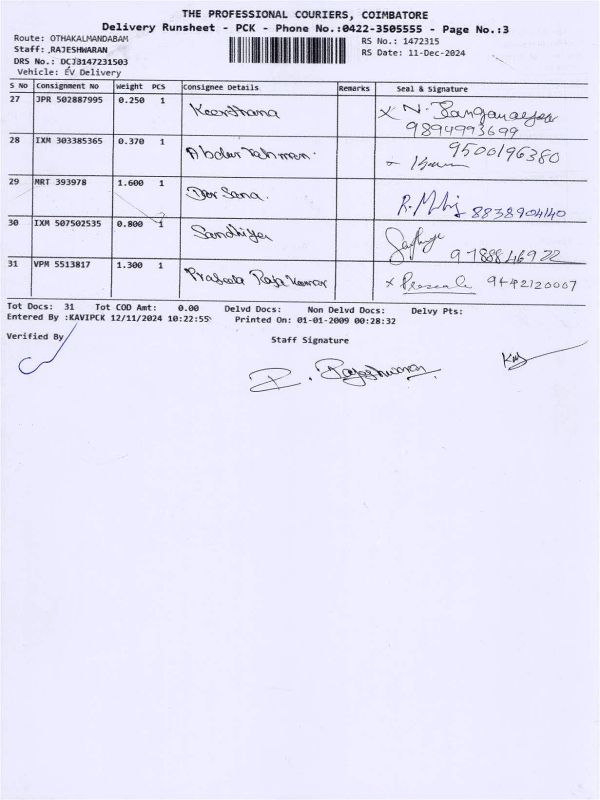 THE PROFESSIONAL COURIERS, COIMBATORE
Delivery Runsheet - PCK - Phone No.:0422-3505555 - Page No.:3
Route: OTHAKALMANDABAM RS No.: 1472315
Staff: RAJESHWARAN RS Date: 11-Dec-2024
DRS No.: DCJ3147231503
Vehicle: EV Delivery
S No Consignment No Weight PCS Consignee Details Remarks Seal & Signature
27 JPR 502887995 0.250 1 Keerthana x N.
9894993699
28 IXM 303385365 0.370 1 Abdur 9500196380
29 MRT 393978 1.600 1 Sana. 8838904140
30 IXM 507502535 0.800 1 Sandhiya 9788846922
31 VPM 5513817 1.300 1 Raja Kumar x 9442120007
Tot Docs: 31 Tot COD Amt: 0.00 Delvd Docs: Non Delvd Docs: Delvy Pts:
Entered By :KAVIPCK 12/11/2024 10:22:55 Printed On: 01-01-2009 00:28:32
Verified By Staff Signature
P. Rajeshwaran